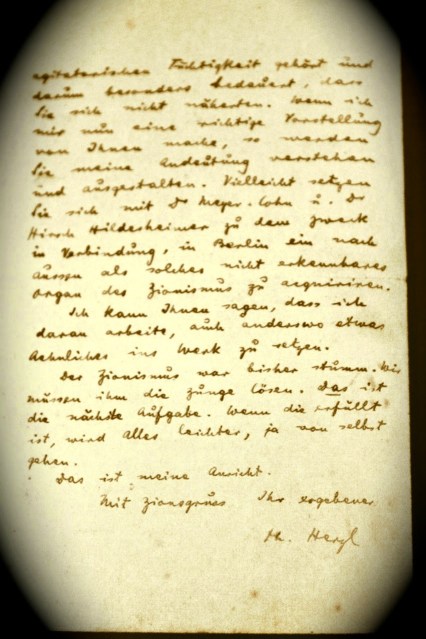 agitatorischen Tüchtigkeit gehört und
darum besonders bedauert, dass
Sie sich nicht näherten. Wenn ich
mir nun eine richtige Vorstellung
von Ihnen mache, so werden
Sie meine Andeutung verstehen
und ausgestalten. Vielleicht setzen
Sie sich mit Dr Meyer-Cohn u. Dr
Hirsch Hildesheimer zu dem Zweck
in Verbindung, in Berlin ein nach
aussen als solches nicht erkennbares
Organ des Zionismus zu acquiriren.
Ich kann Ihnen sagen, dass ich
daran arbeite, auch anderswo etwas
Aehnliches ins Werk zu setzen.
Der Zionismus war bisher stumm. Wir
müssen ihm die Zunge lösen. Das ist
die nächste Aufgabe. Wenn die erfüllt
ist, wird Alles leichter, ja von selbst
gehen.
Das ist meine Ansicht.
Mit Zionsgruss Ihr ergebener
Th. Herzl